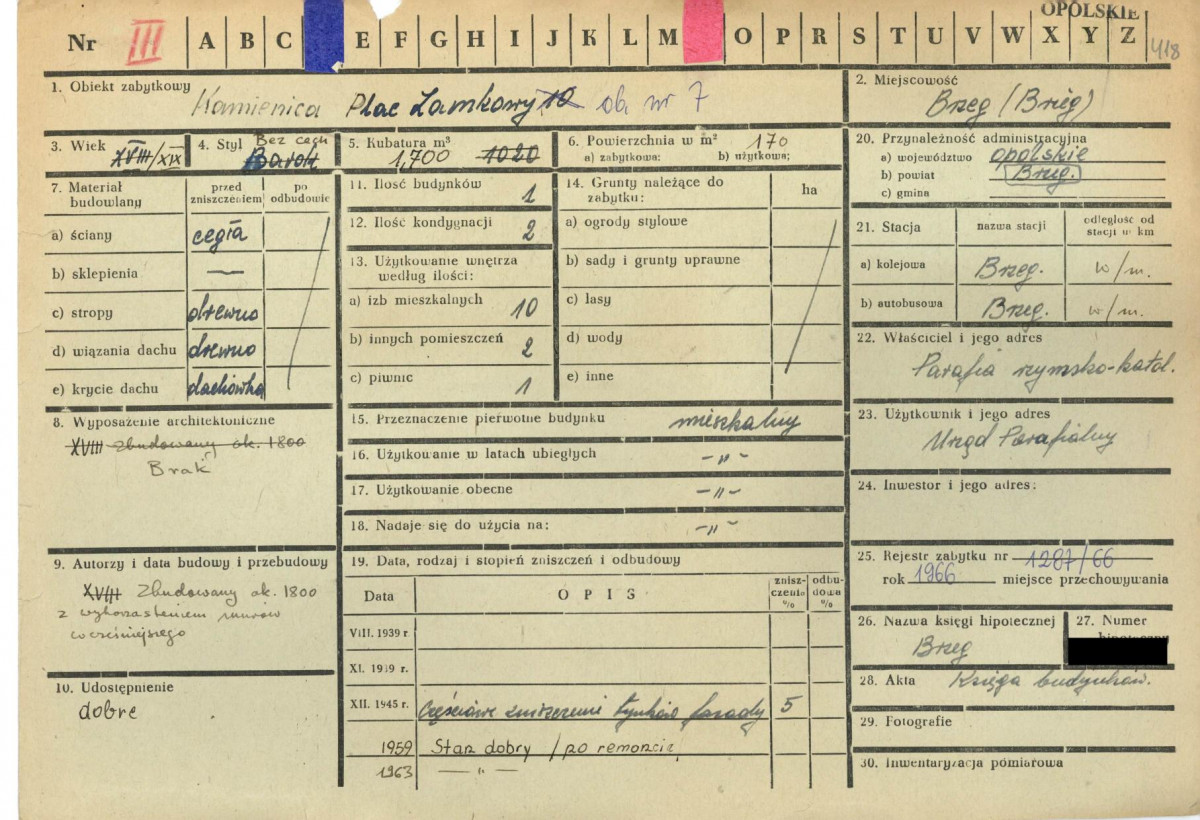 OPOLSKIE
Nr III A B C E F G H I J K L M O P R S T U V W X Y Z
418
1. Obiekt zabytkowy
Kamienica Plac Zamkowy 10 ob. nr 7
2. Miejscowość
Brzeg (Brieg)
3. Wiek
XVIII/XIX
4. Styl Bez cech
Barok
5. Kubatura m³
1,700 1020
6. Powierzchnia w m² 170
a) zabytkowa: b) użytkowa;
7. Materiał budowlany
przed zniszczeniem
po odbudowie
a) ściany cegła
b) sklepienia —
c) stropy drewno
d) wiązania dachu drewno
e) krycie dachu dachówka
8. Wyposażenie architektoniczne
XVIII zbudowany ok. 1800
Brak
9. Autorzy i data budowy i przebudowy
XVIII Zbudowany ok. 1800
z wykorzystaniem murów
wcześniejszego
10. Udostępnienie
dobre
11. Ilość budynków 1
12. Ilość kondygnacji 2
13. Użytkowanie wnętrza
według ilości:
a) izb mieszkalnych 10
b) innych pomieszczeń 2
c) piwnic 1
14. Grunty należące do
zabytku:
ha
a) ogrody stylowe
b) sady i grunty uprawne
c) lasy
d) wody
e) inne
15. Przeznaczenie pierwotne budynku mieszkalny
16. Użytkowanie w latach ubiegłych -"-
17. Użytkowanie obecne -"-
18. Nadaje się do użycia na: -"-
19. Data, rodzaj i stopień zniszczeń i odbudowy
Data OPIS znisz-czenia % odbu-dowa %
VIII. 1939 r.
XI. 1939 r.
XII. 1945 r. Częściowe zniszczenie tynków fasady 5
1959 Stan dobry / po remoncie
1963 — " —
20. Przynależność administracyjna
a) województwo opolskie
b) powiat Brzeg.
c) gmina
21. Stacja
nazwa stacji
odległość od
stacji w km
a) kolejowa Brzeg. w/m.
b) autobusowa Brzeg. w/m.
22. Właściciel i jego adres
Parafia rzymsko-katol.
23. Użytkownik i jego adres
Urząd Parafialny
24. Inwestor i jego adres:
25. Rejestr zabytku nr 1287/66
rok 1966 miejsce przechowywania
26. Nazwa księgi hipotecznej
Brzeg
27. Numer
28. Akta Księga budynków.
29. Fotografie
30. Inwentaryzacja pomiarowa